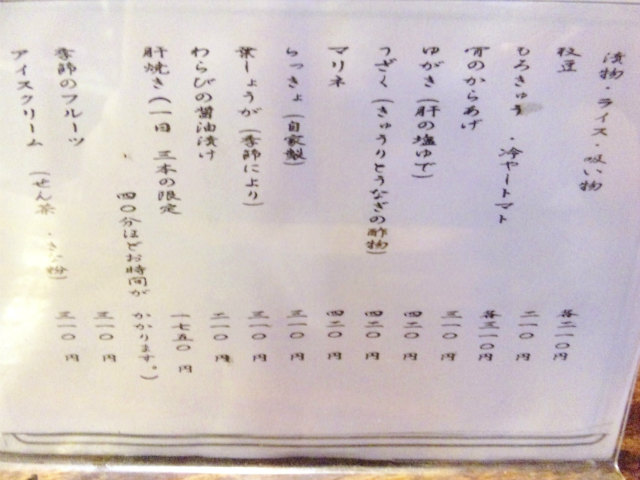 漬物・ライス・吸い物 各二一〇円
枝豆 二一〇円
もろきゅう ・冷やートマト 各三一〇円
骨のからあげ 三一〇円
ゆがき(肝の塩ゆで) 四二〇円
うざく(きゅうりとうなぎの酢物) 四二〇円
マリネ 四二〇円
らっきょ(自家製) 三一〇円
葉しょうが(季節により) 三一〇円
わらびの醤油漬け 二一〇円
肝焼き(一日 三本の限定 一七五〇円
四〇分ほどお時間が かかります。)
季節のフルーツ 三一〇円
アイスクリーム (せん茶 ・きな粉) 三一〇円